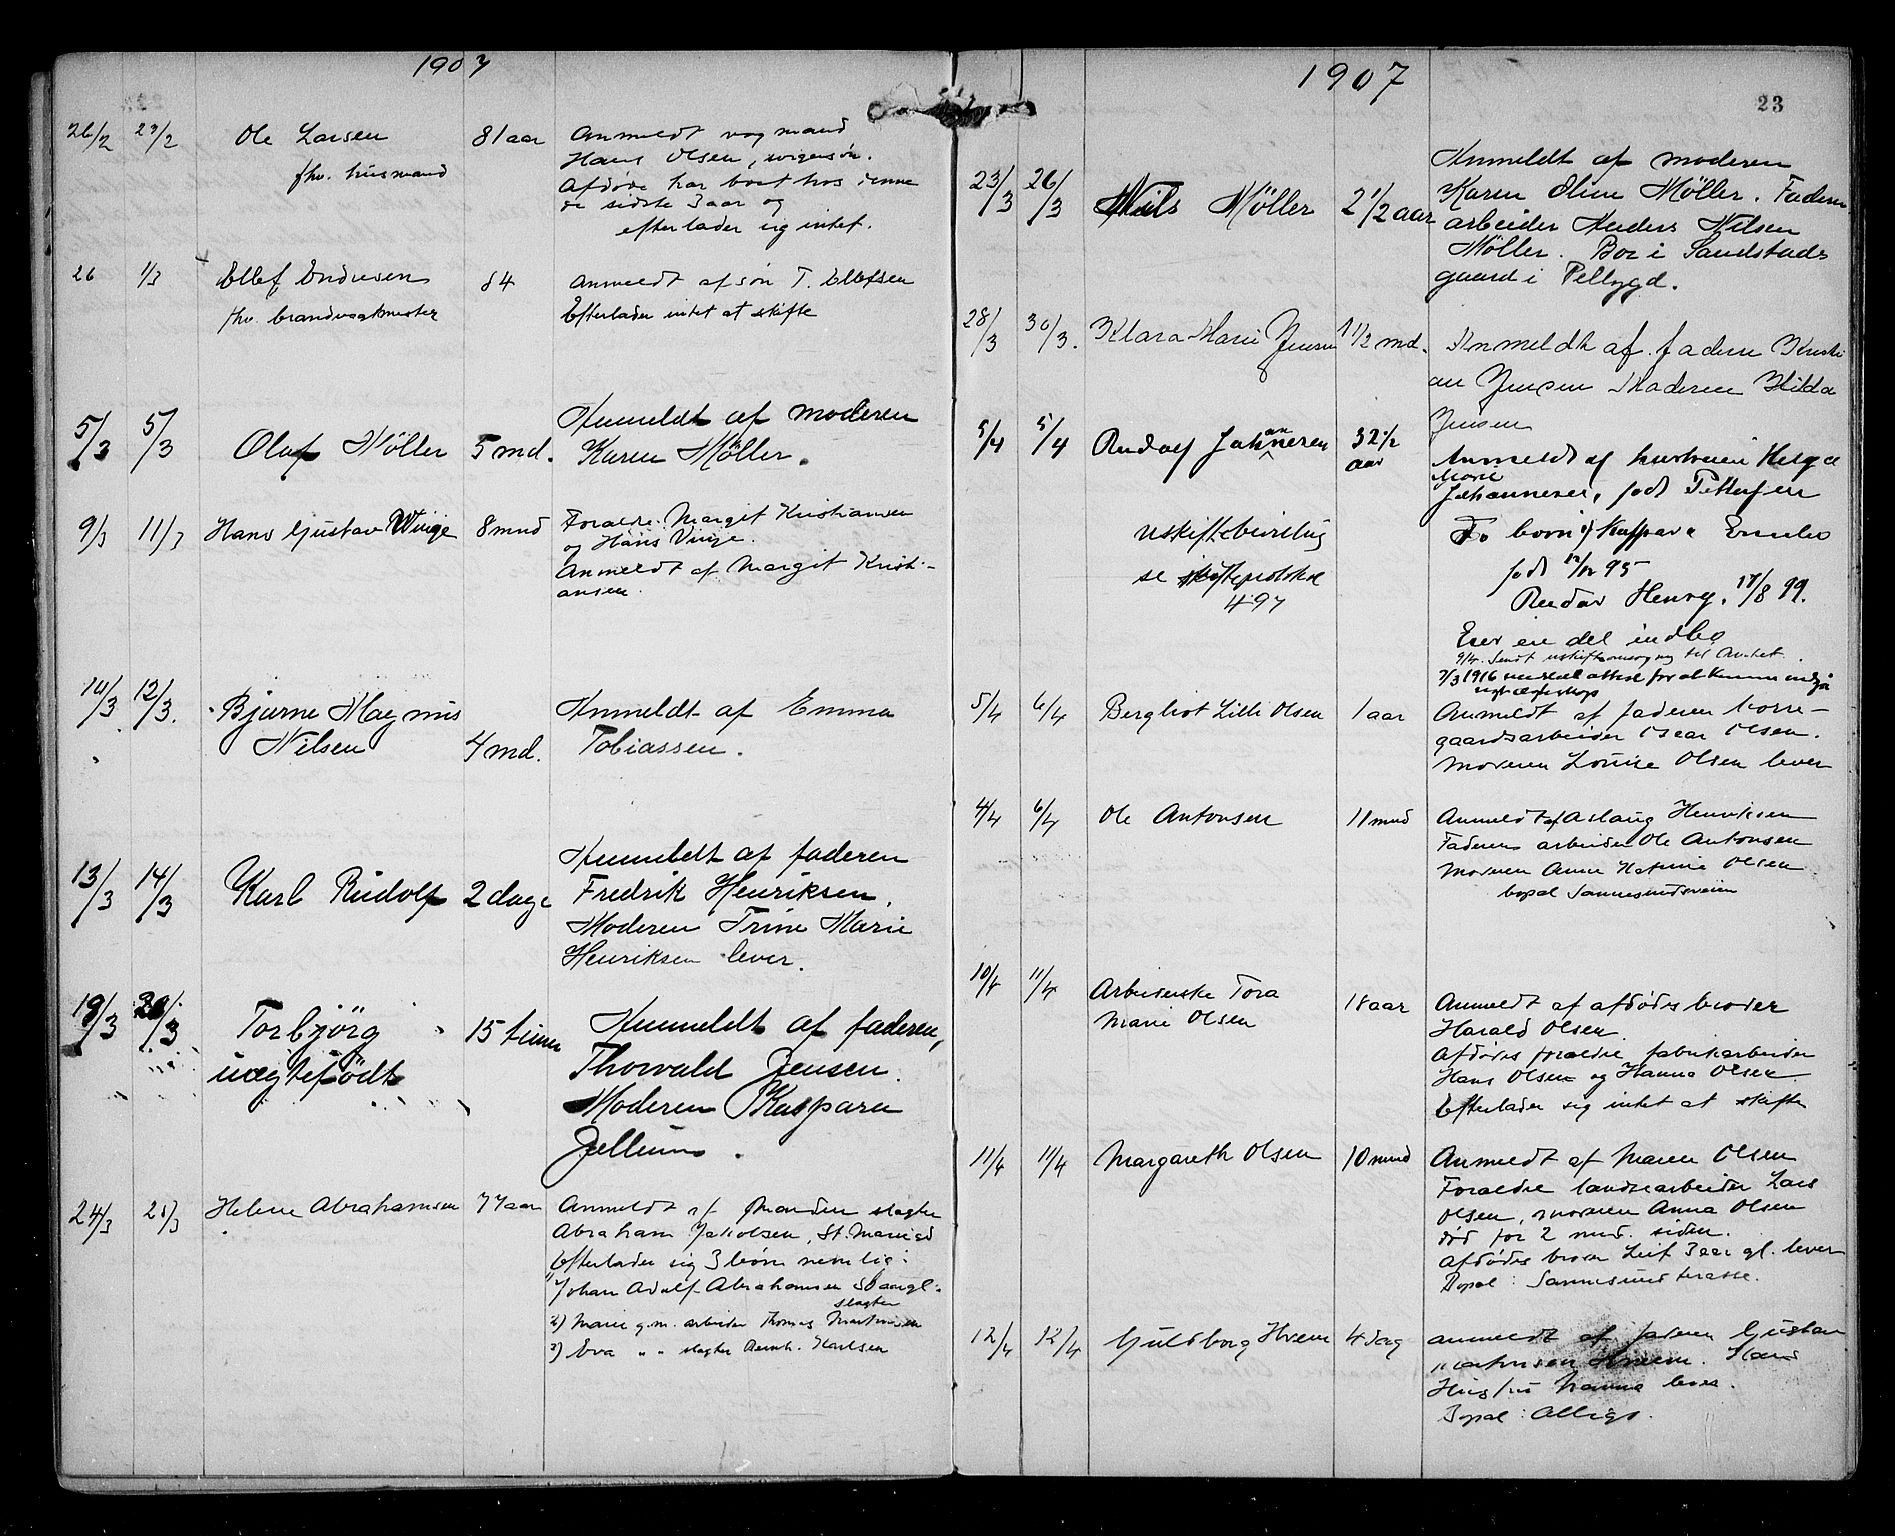 1907
26/2 27/2 Ole Larsen 81 aar Anmeldt vognmand
fhv. husmand Hans Olsen, svigersøn.
Afdøde har boet hos denne
de sidste 3 aar og
efterlader sig intet.
26 1/3 Ellef Endresen 84 Anmeldt af søn T. Ellefsen
fhv. brandvagtmester Efterlader intet at skifte
5/3 5/3 Olaf Møller 5 md. Anmeldt af moderen
Karen Møller.
9/3 11/3 Hans Gustav Winge 8 mnd Foraldre Margit Kristiansen
og Hans Vinje.
Anmeldt af Margit Kristi-
ansen.
14/3 12/3. Bjarne Magnus Anmeldt af Emma
Nilsen 4 md. Tobiassen.
13/3 14/3 Karl Rudolf 2 dage Anmeldt af faderen
Fredrik Henriksen.
Moderen Trine Marie
Henriksen lever.
19/3 20/3 Torbjørg 15 timer Anmeldt af faderen,
uægtefødt Thorvald Jensen.
Moderen Kaspara
Jellum.
24/3 25/3 Helene Abrahamsen 77 aar Anmeldt af Manden slagter
Abraham Jakobsen, St. Mariegd
Efterlader sig 3 børn nemlig:
1) Johan Adolf Abrahamsen 50 aar gl.
slagter
2) Marie g.m. arbeider Thomas Martinsen
3) Eva " " slagter Bernh. Karlsen
1907
23
23/3 26/3 Nils Möller 2 1/2 aar Anmeldt af moderen
Karen Oline Møller. Faderen
arbeider Anders Nilsen
Møller. Bor i Sandstads
gaard i Pellygd.
28/3 30/3. Klara Marie Jensen 1 1/2 md. Anmeldt af faderen Kristi
an Jensen Moderen Hilda
Jensen
5/4 5/4 Rudolf Johannesen 32 1/2 aar Anmeldt af hustruen Helga
Marie
Johannesen, født Pettersen
To børn 1) Kaspara Emilie
født 12/12 95
Reidar Henry. 17/8 99.
uskiftebevilling
se skifteprotokol
497
Eier en del indbo
9/4. Sendt uskifteansøgning til Amtet.
7/3 1916 meddelt attest for at kunne indgå
nyt ægteskap
5/4 6/4 Bergliot Lilli Olsen 1 aar Anmeldt af faderen borre-
gaardsarbeider Oscar Olsen.
Moderen Louise Olsen lever
4/4 6/4 Ole Antonsen 11 mnd Anmeldt af Aslaug Henriksen
Faderen arbeider Ole Antonsen
Moderen Anne Katrine Olsen
bopæl Sannesundsveien
10/4 11/4 Arbeiderske Tora 18 aar Anmeldt af afdødes broder
Marie Olsen Harald Olsen.
Afdødes foraldre fabrikarbeider
Hans Olsen og Hanna Olsen.
Efterlader sig intet at skifte
11/4 11/4 Margareth Olsen 10 mnd Anmeldt af Maren Olsen
Foraldre landsearbeider Lars
Olsen, moderen Anna Olsen
død for 2 mnd. siden.
Afdødes broder Leif 3 aar gl. lever
Bopæl: Sannesund terasse.
12/4 12/4 Guldborg Hveem 4 dag Anmeldt af faderen Gustav
Hveem. Hans
Hustru Hanna lever.
Bopæl: